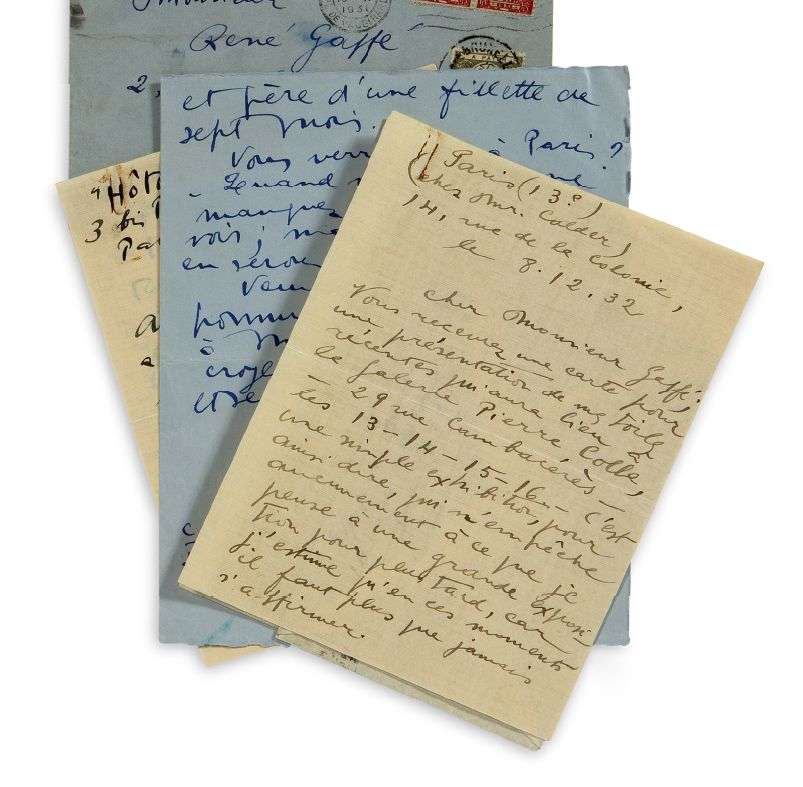 Monsieur
René Gaffé
2,
et père d'une fillette de
sept mois.
Vous verr à Paris?
- Quand
manquez
vois; ma
en serou
Venu
pommu
à
croye
"Hôte
3 bis
Par
Paris (13e)
(chez Mr. Calder)
14, rue de la Colonie,
le 8.12.32
Cher Monsieur Gaffé:
Vous recevrez une carte pour
une présentation de mes toiles
récentes qui aura lieu à
la galerie Pierre Colle,
— 29 rue Cambacérès —
les 13-14-15-16 — c'est
une simple exhibition, pour
ainsi dire, qui n'empêche
aucunement à ce que je
pense à une grande exposi-
tion pour plus tard, car
j'estime qu'en ces moments
il faut plus que jamais
s'affirmer.